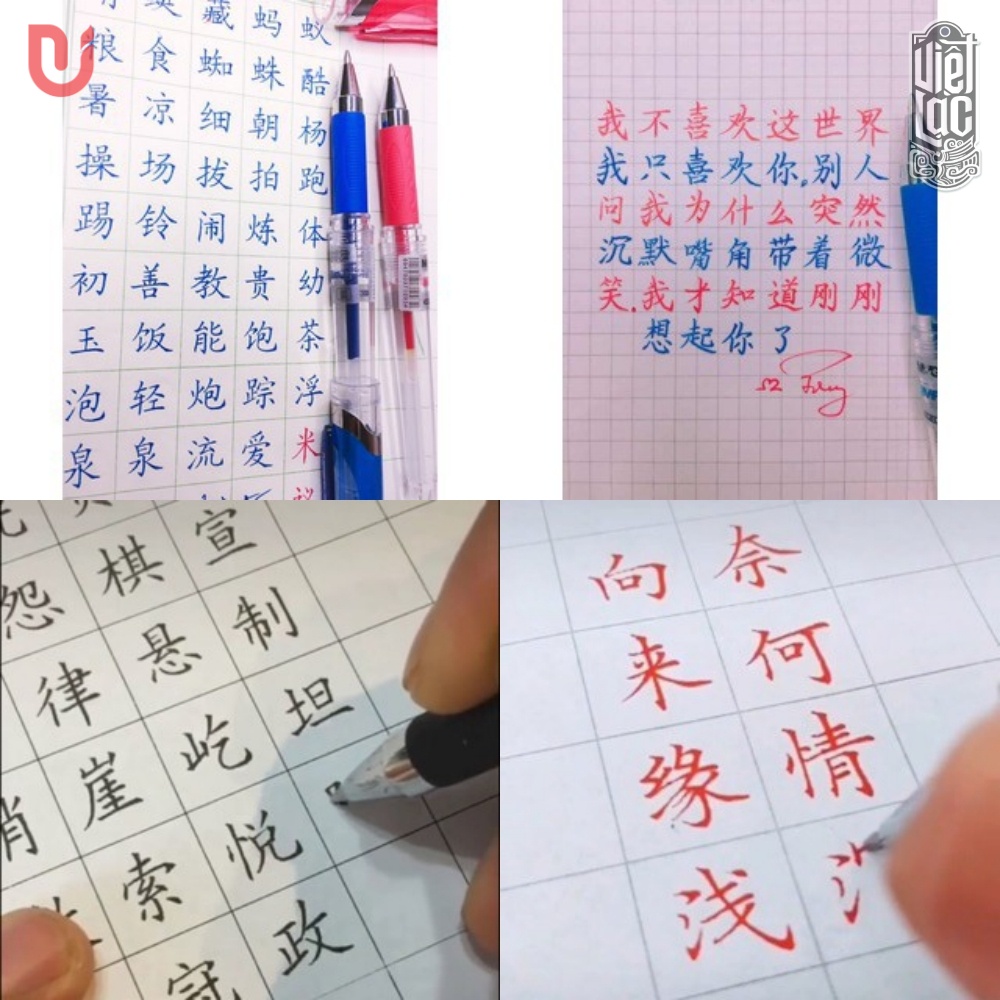 藏 蚂 蚁
粮 食 蜘 蛛 酷
暑 凉 细 朝 杨
操 场 拔 拍 跑
踢 铃 闹 炼 体
初 善 教 贵 幼
玉 饭 能 饱 茶
泡 轻 炮 踪 浮
泉 泉 流 爱 米
Việt Lạc
我不喜欢这世界
我只喜欢你。别人
问我为什么突然
沉默嘴角带着微
笑。我才知道刚刚
想起你了
怨 棋 宣
律 悬 制
崖 屹 坦
索 悦
冠 政
向 奈
来 何
缘 情
浅